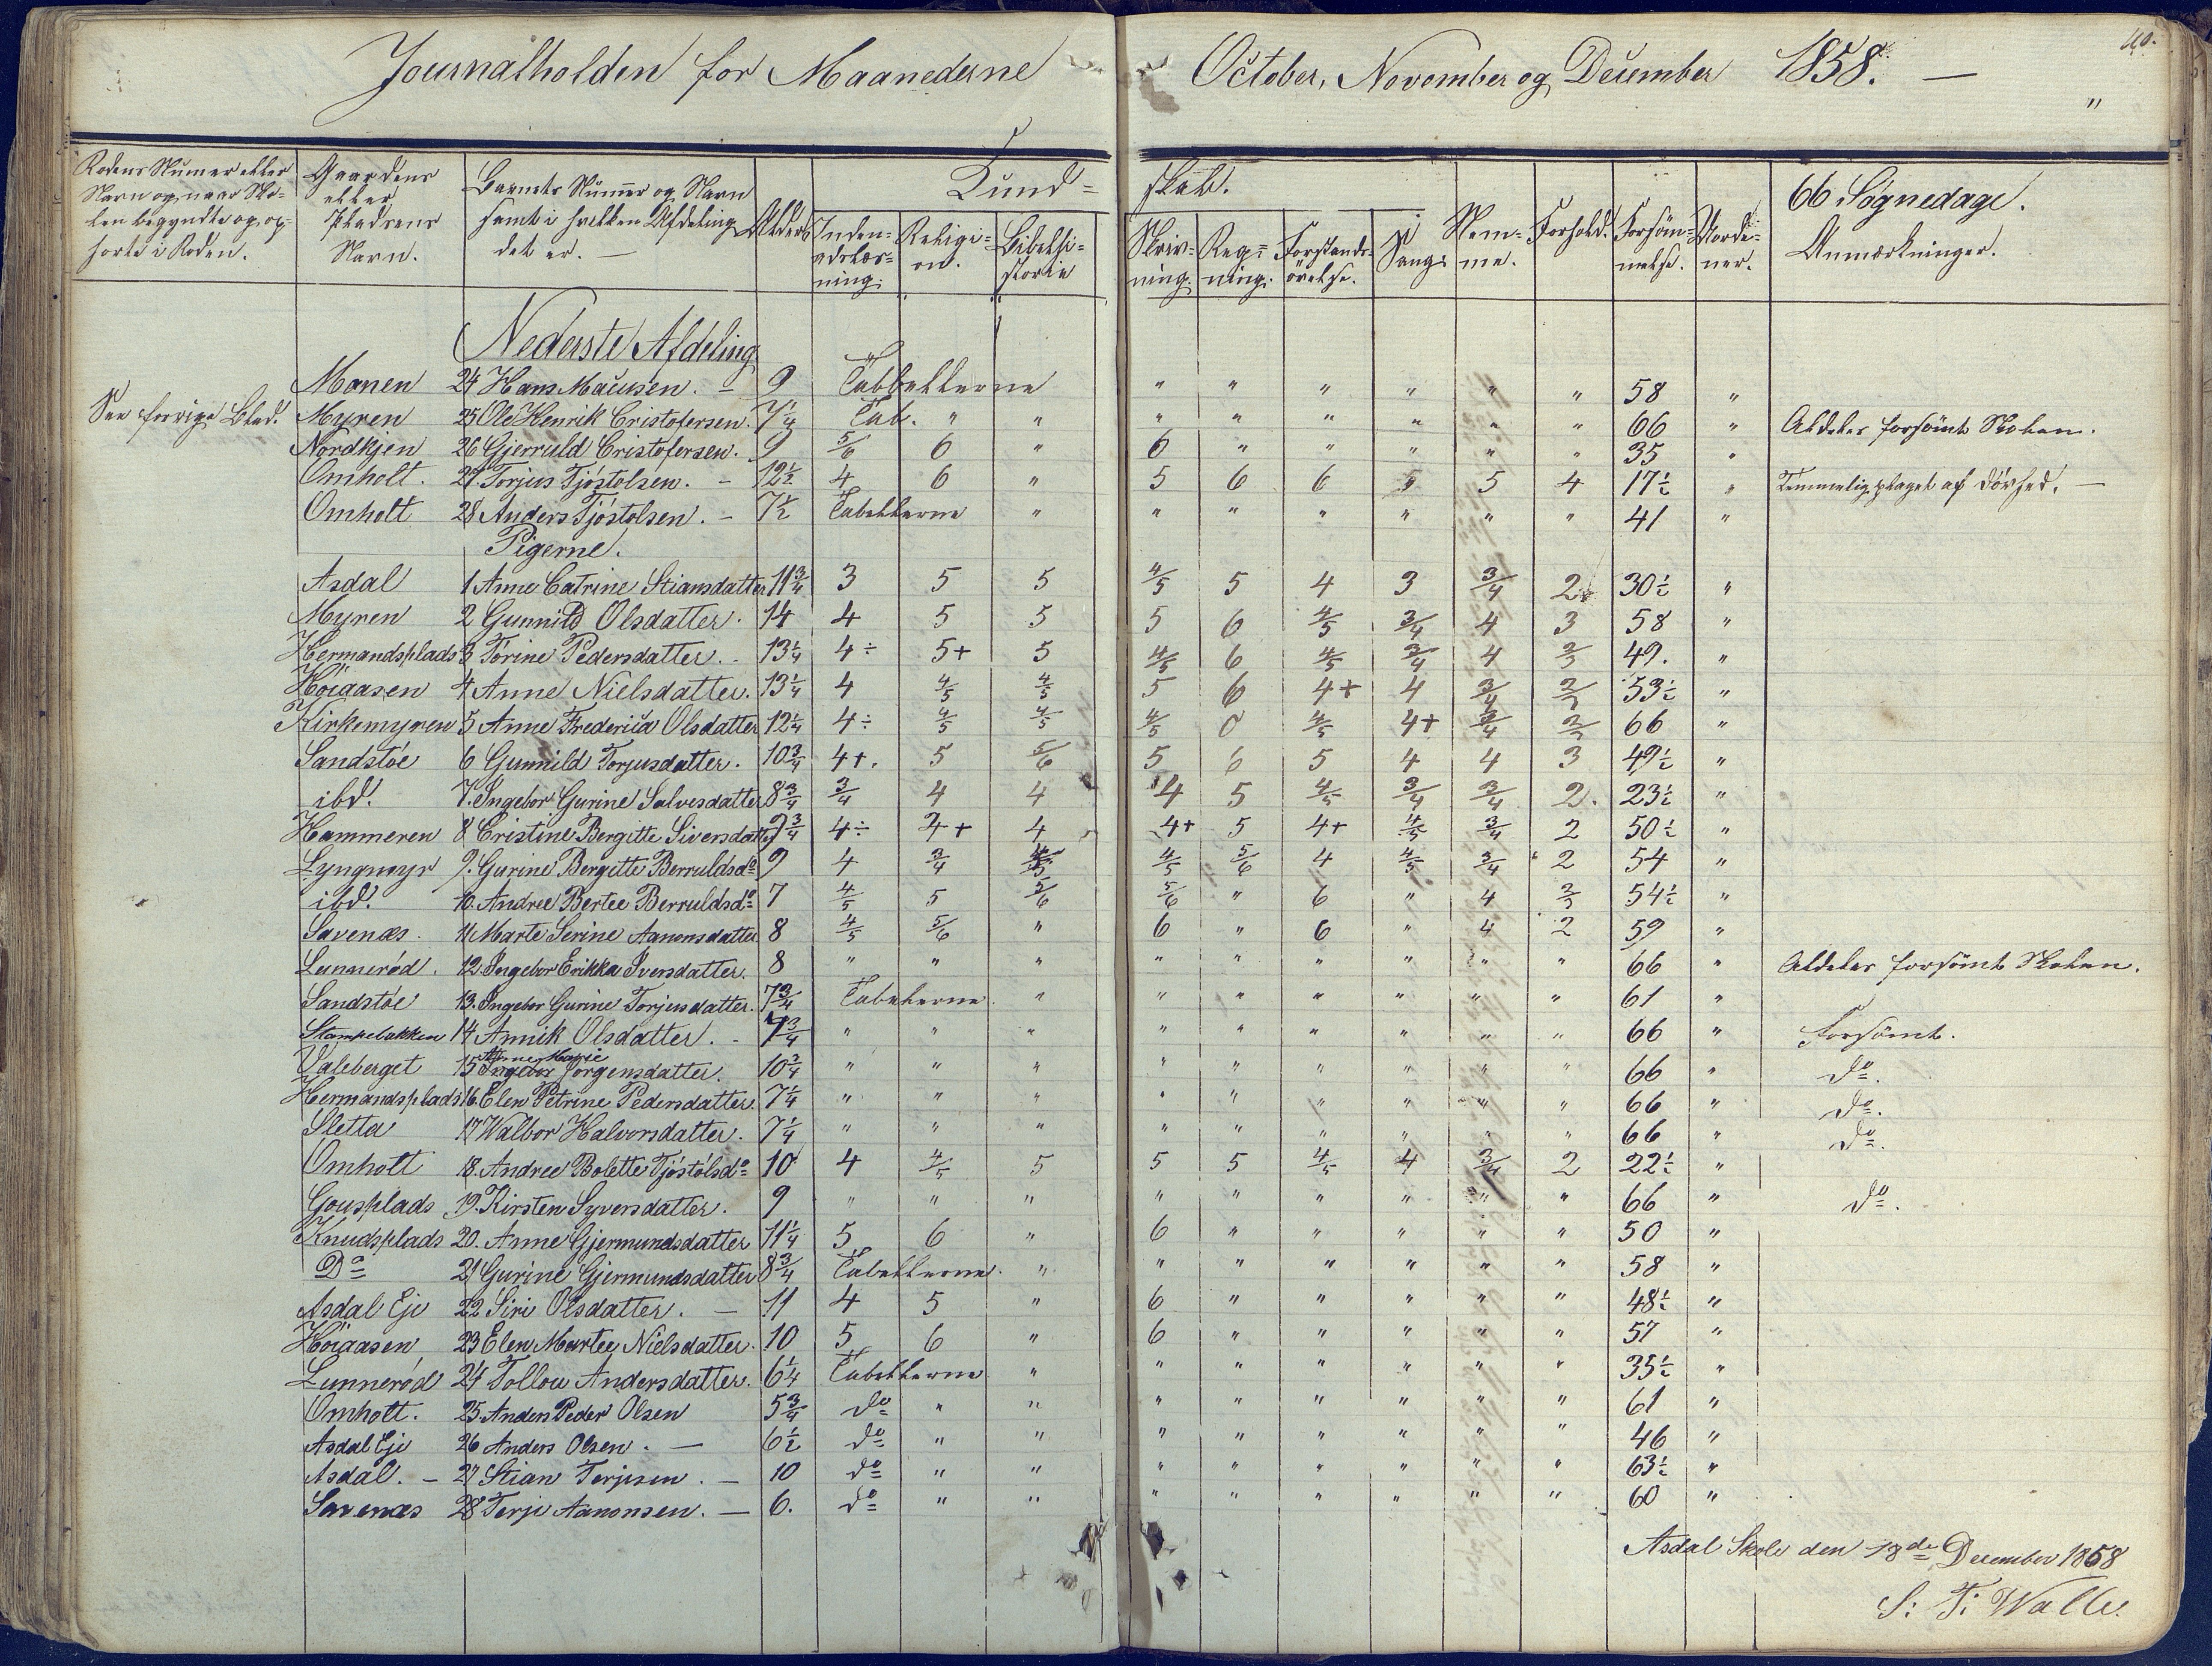 Journalholden for Maanederne October, November og December 1858. —
"
Rodens Numer eller Navn og naar Skolen begyndte og ophørte i Roden.
Gaardens eller Pladsens Navn.
Barnets Nummer og Navn samt i hvilken Afdeling det er. —
Alder
Kundskab.
Indenadslæsning.
Religion.
Bibelhistorie
Skrivning.
Regning.
Forstandsøvelse.
Sang.
Nemme.
Forhold.
Forsømmelse.
66 Søgnedage.
Anmærkninger.
Nederste Afdeling
Manen 24 Hans Maŭrisen. – 9 Tabbellerne " " " " " " 58 "
See forrige Blad. Myren 25 Ole Henrik Cristofersen. 7 1/4 Tab. " " " " " " " " 66 " Aldeles forsømt Skolen.
Nordkjen 26 Gjerruld Cristofersen. 9 5/6 6 " 6 " " " " " 35 "
Omholt. 27. Torjus Tjöstolsen. – 12 1/2 4 6 " 5 6 6 5 5 4 17 1/2 " Temmelig plaget af Dövhed. —
Omholt 28 Anders Tjöstolsen. – 7 1/2 Tabellerne " " " " " " " 41 "
Pigerne.
Asdal 1 Anne Catrine Stiansdatter 11 3/4 3 5 5 4/5 5 4 3 3/4 2 30 1/2 "
Myren 2 Gunnild Olsdatter. 14 4 5 5 5 6 4/5 3/4 4 3 58 "
Hermandsplads 3 Torine Pedersdatter. - 13 1/4 4÷ 5+ 5 4/5 6 4/5 3/4 4 2/3 49. "
Höiaasen 4 Anne Nielsdatter. 13 1/4 4 4/5 4/5 5 6 4+ 4 3/4 2/3 53 1/2 "
Kirkemyren 5 Anne Frederica Olsdatter 12 1/4 4÷ 4/5 4/5 4/5 0 4/5 4+ 3/4 2/3 66 "
Sandstöe 6 Gunnild Torjusdatter. 10 3/4 4+. 5 5/6 5 6 5 4 4 3 49 1/2 "
ibd. 7. Ingebor Gurine Salvesdatter 8 3/4 3/4 4 4 4 5 4/5 3/4 3/4 2. 23 1/2 "
Hammeren 8 Cristine Bergitte Siversdatter 9 3/4 4÷ 4+ 4 4+ 5 4+ 4/5 3/4 2 50 1/2 "
Lyngmyr 9. Gurine Bergitte Berruldsd° 9 4 3/4 4/5 4/5 5/6 4 4/5 3/4 2 54 "
ibd. 10. Andree Bertee Berruldsd° 7 4/5 5 5/6 5/6 " 6 " 4 2/3 54 1/2 "
Savenæs. 11 Marte Serine Aanonsdatter 8 4/5 5/6 " 6 " 6 " 4 2 59 "
Lunnerød. 12. Ingebor Erikka Iversdatter. 8 " " " " " " " " " 66 " Aldeles forsömt Skolen.
Sandstöe 13. Ingebor Gurine Torjusdatter. 7 3/4 Tabellerne. " " " " " " " 61 "
Stampebakken 14 Annik Olsdatter. - 7 3/4 " " " " " " " " " 66 " Forsömt.
Valeberget 15 Anne Marie Jörgensdatter. 10 3/4 " " " " " " " " " 66 " d°.
Hermandsplads 16. Elen Petrine Pedersdatter. 7 1/4 " " " " " " " " " 66 " d°.
Sletta 17 Walbor Halvorsdatter. 7 1/4 " " " " " " " " " 66 " d°.
Omholt 18. Andree Bolette Tjöstolsd° 10 4 4/5 5 5 5 4/5 4 3/4 2 22 1/2 "
Gousplads 19. Kirsten Syversdatter. 9 " " " " " " " " " 66 " d°.
Knudsplads 20. Anne Gjermundsdatter 11 1/4 5 6 " 6 " " " " " 50 "
D° 21 Gurine Gjermundsdatter 8 3/4 Tabellerne. " " " " " " " 58 "
Asdal Eje 22 Siri Olsdatter. — 11 4 5 " 6 " " " " " 48 1/2 "
Höiaasen 23 Elen Martee Nielsdatter. 10 5 6 " 6 " " " " " 57 "
Lunneröd 24 Tollou Andersdatter. 6 1/4 Tabellerne. " " " " " " " 35 1/2 "
Omholt. 25. Anders Peder Olsen 5 3/4 d° " " " " " " " " 61 "
Asdal Eje 26 Anders Olsen. — 6 1/2 d° " " " " " " " " 46 "
Asdal. – 27 Stian Terjesen. – 10 d° " " " " " " " " 63 1/2 "
Savenæs 28 Terje Aanonsen. — 6. d° " " " " " " " " 60 "
Asdal Skole den 18de December 1858
S: T: Walle.